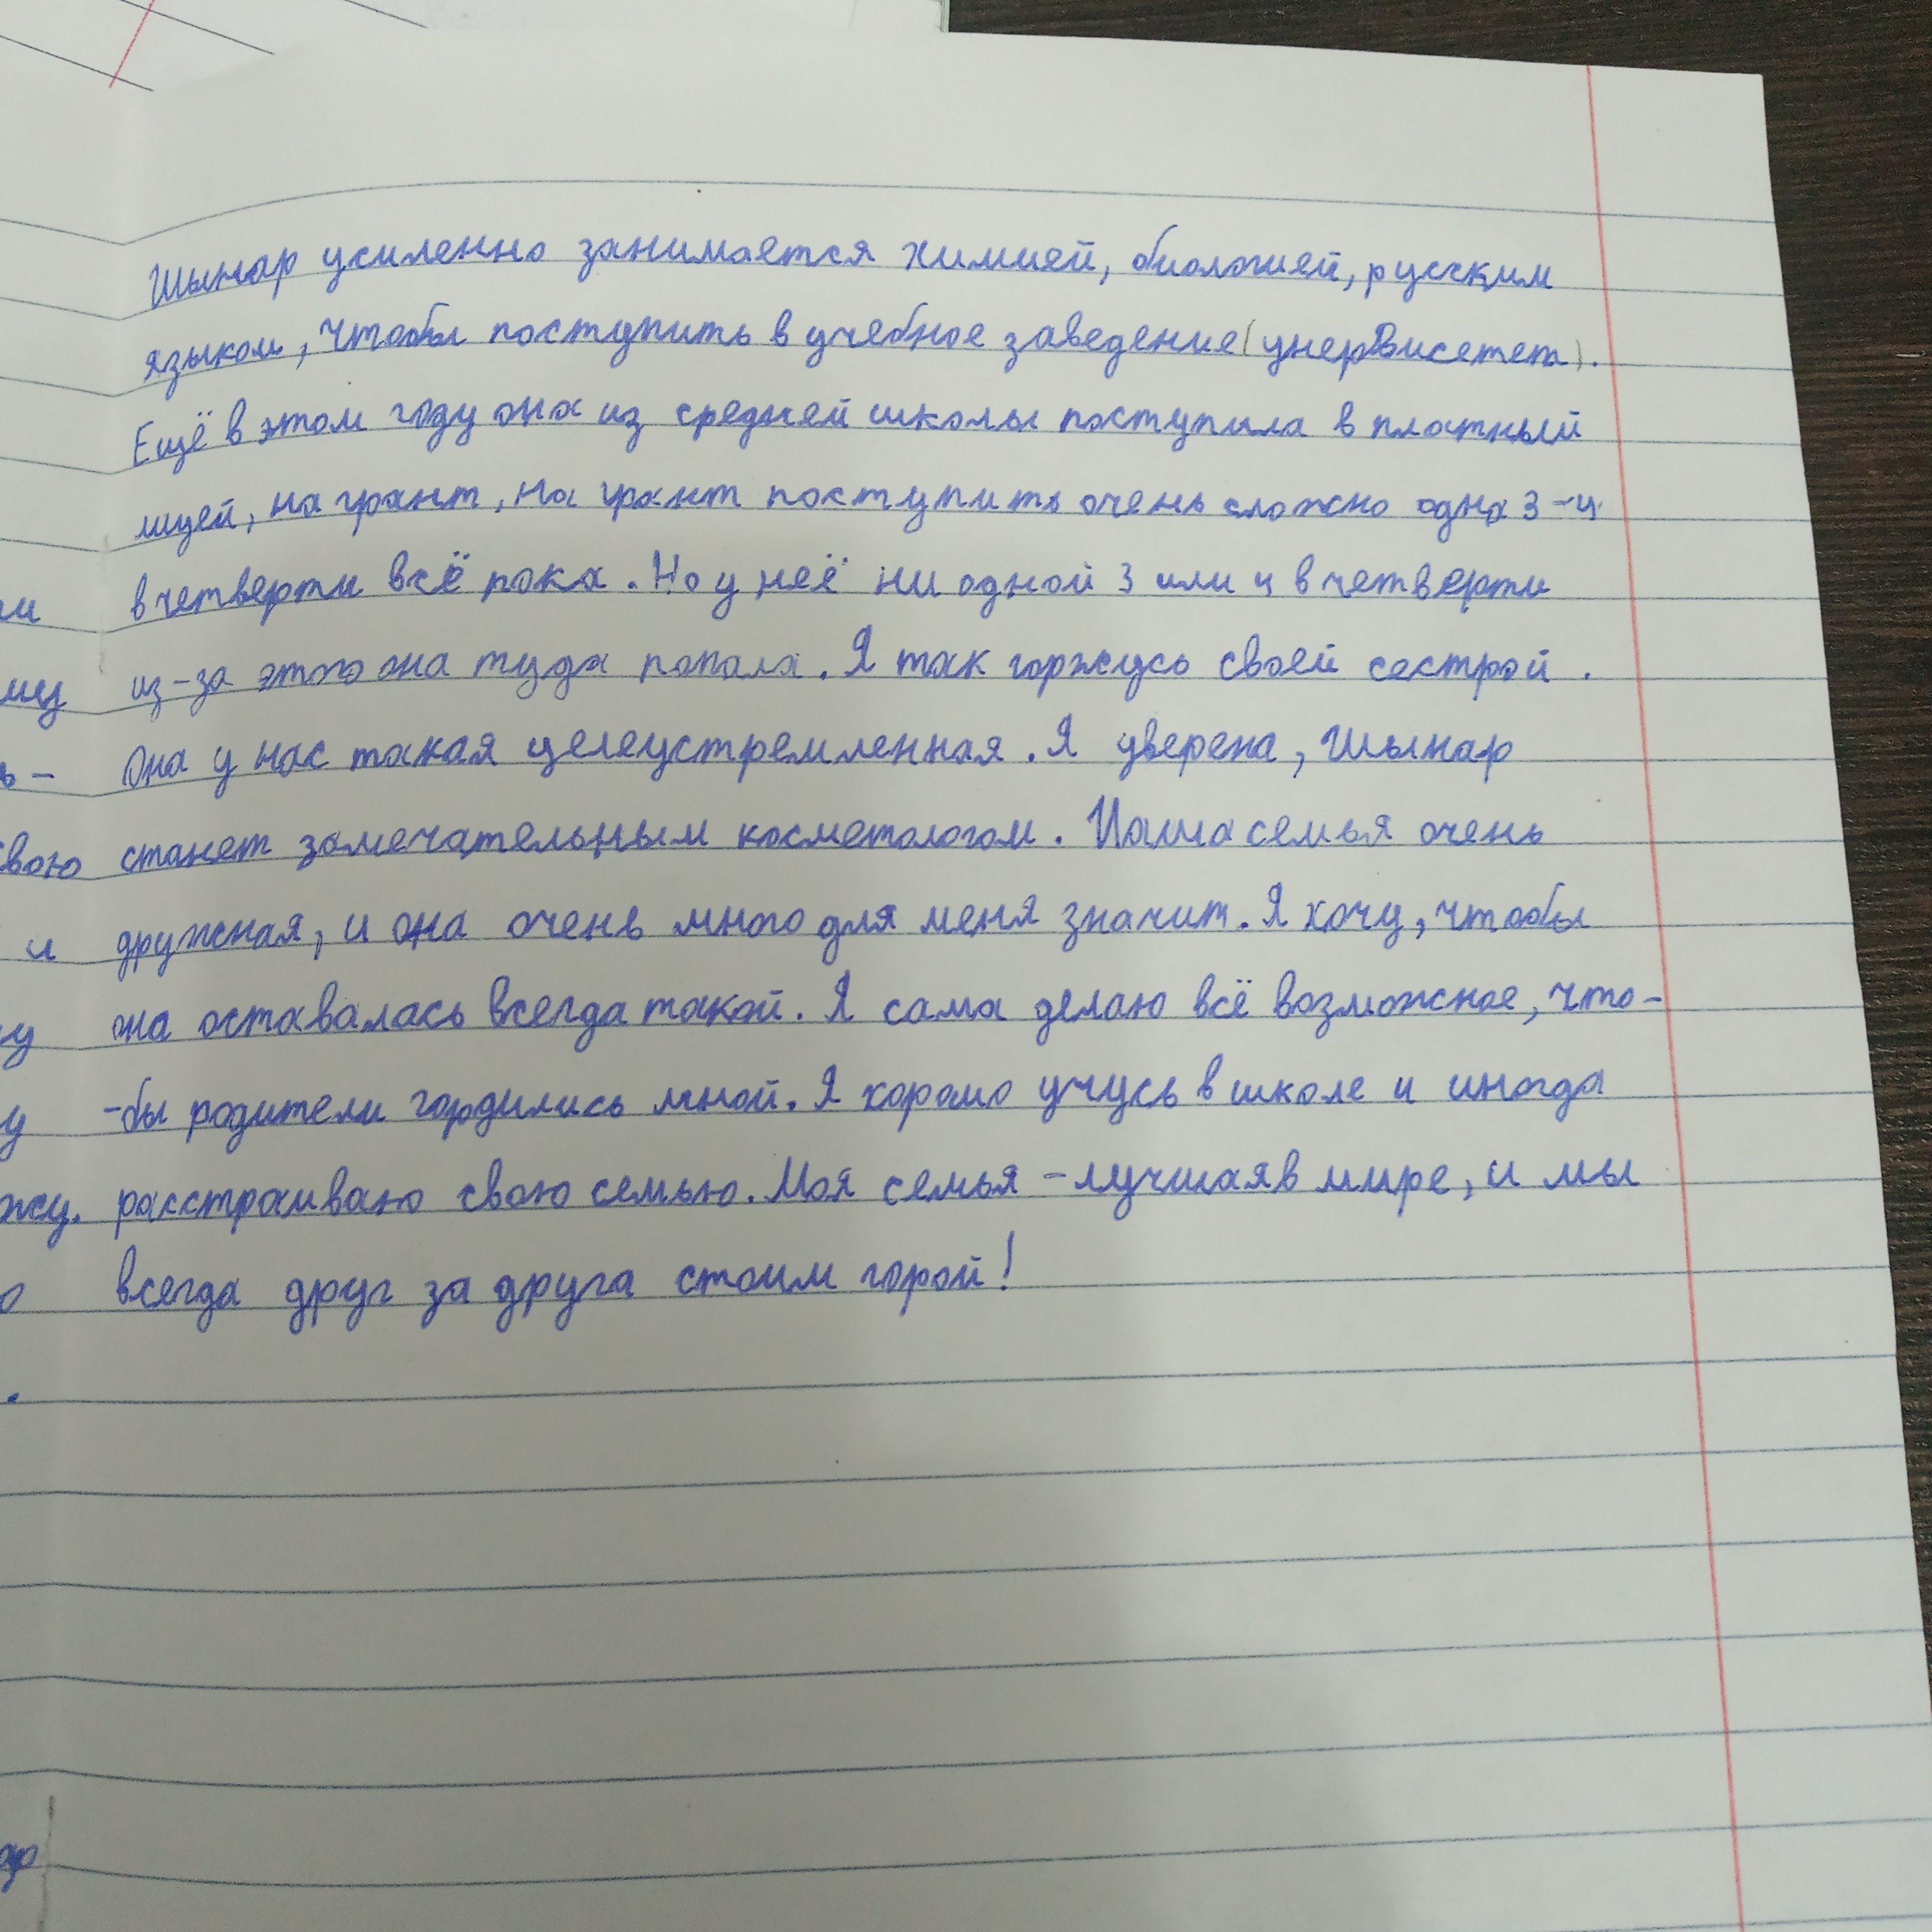 Шынар усиленно занимается химией, биологией, русским
языком, чтобы поступить в учебное заведение (унервиситет).
Ещё в этом году она из средней школы поступила в платный
лицей, на грант, на грант поступить очень сложно одна 3-ч
и в четверти всё пока. Но у неё ни одной 3 или ч в четверти
му из-за этого она туда попала. Я так горжусь своей сестрой.
ь- Она у нас такая целеустремленная. Я уверена, Шынар
свою станет замечательным косметологом. Наша семья очень
и дружная, и она очень много для меня значит. Я хочу, чтобы
у она оставалась всегда такой. Я сама делаю всё возможное, что-
у -бы родители гордились мной. Я хорошо учусь в школе и иногда
жу. расстраиваю свою семью. Моя семья - лучшая в мире, и мы
о всегда друг за друга стоим горой!